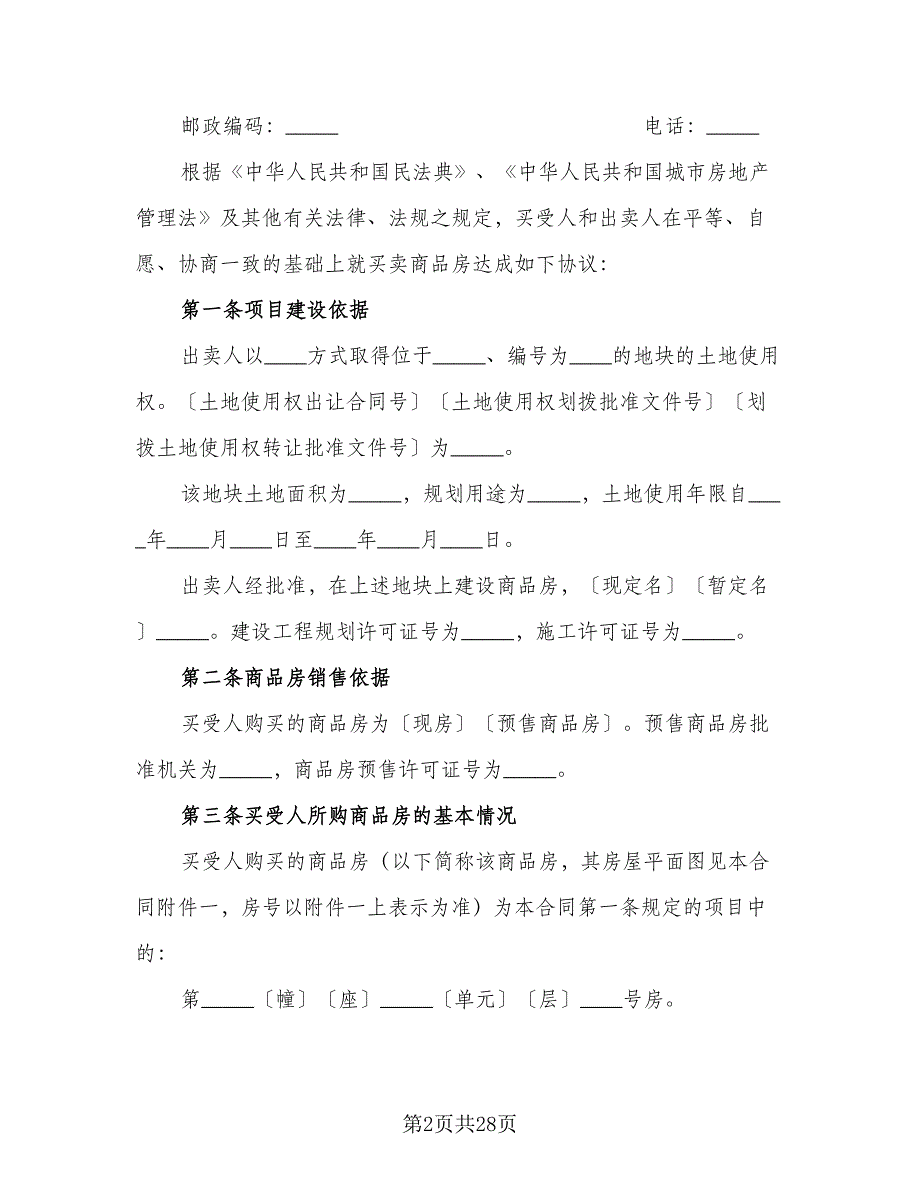 邮政编码：_____ 电话：_____
根据《中华人民共和国民法典》、《中华人民共和国城市房地产
管理法》及其他有关法律、法规之规定，买受人和出卖人在平等、自
愿、协商一致的基础上就买卖商品房达成如下协议：
第一条项目建设依据
出卖人以____方式取得位于_____、编号为____的地块的土地使用
权。〔土地使用权出让合同号〕〔土地使用权划拨批准文件号〕〔划
拨土地使用权转让批准文件号〕为_____。
该地块土地面积为_____，规划用途为_____，土地使用年限自___
_年____月____日至____年____月____日。
出卖人经批准，在上述地块上建设商品房，〔现定名〕〔暂定名
〕_____。建设工程规划许可证号为_____，施工许可证号为_____。
第二条商品房销售依据
买受人购买的商品房为〔现房〕〔预售商品房〕。预售商品房批
准机关为_____，商品房预售许可证号为_____。
第三条买受人所购商品房的基本情况
买受人购买的商品房（以下简称该商品房，其房屋平面图见本合
同附件一，房号以附件一上表示为准）为本合同第一条规定的项目中
的：
第_____〔幢〕〔座〕_____〔单元〕〔层〕____号房。
第2页共28页